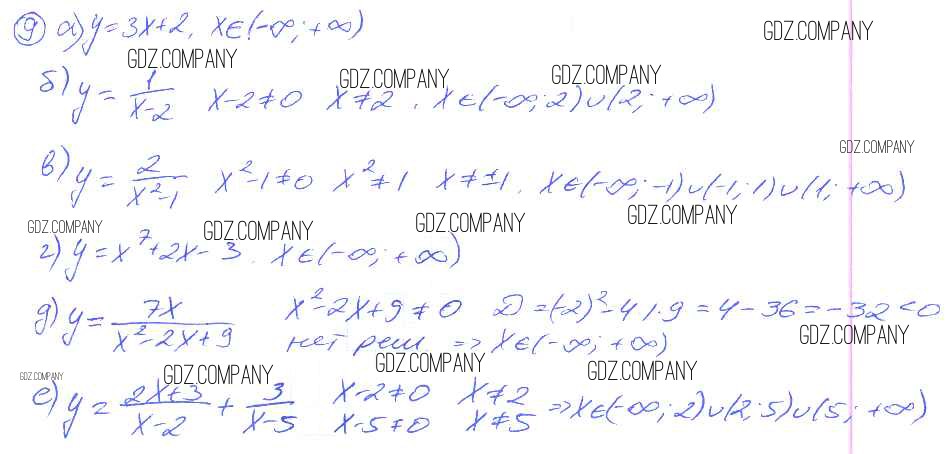 9 а) y = 3x+2, x∈(-∞; +∞) GDZ.COMPANY
GDZ.COMPANY
б) y = 1/(x-2) x-2≠0 x≠2, x∈(-∞; 2)∪(2; +∞) GDZ.COMPANY GDZ.COMPANY
GDZ.COMPANY
в) y = 2/(x²-1) x²-1≠0 x²≠1 x≠±1, x∈(-∞; -1)∪(-1; 1)∪(1; +∞)
GDZ.COMPANY GDZ.COMPANY GDZ.COMPANY GDZ.COMPANY
г) y = x⁷+2x-3, x∈(-∞; +∞)
д) y = 7x/(x²-2x+9) x²-2x+9≠0 D = (-2)²-4·1·9 = 4-36 = -32 < 0
нет реш => x∈(-∞; +∞) GDZ.COMPANY
GDZ.COMPANY GDZ.COMPANY GDZ.COMPANY GDZ.COMPANY
е) y = (2x+3)/(x-2) + 3/(x-5) x-2≠0 x≠2 => x∈(-∞; 2)∪(2; 5)∪(5; +∞)
x-5≠0 x≠5